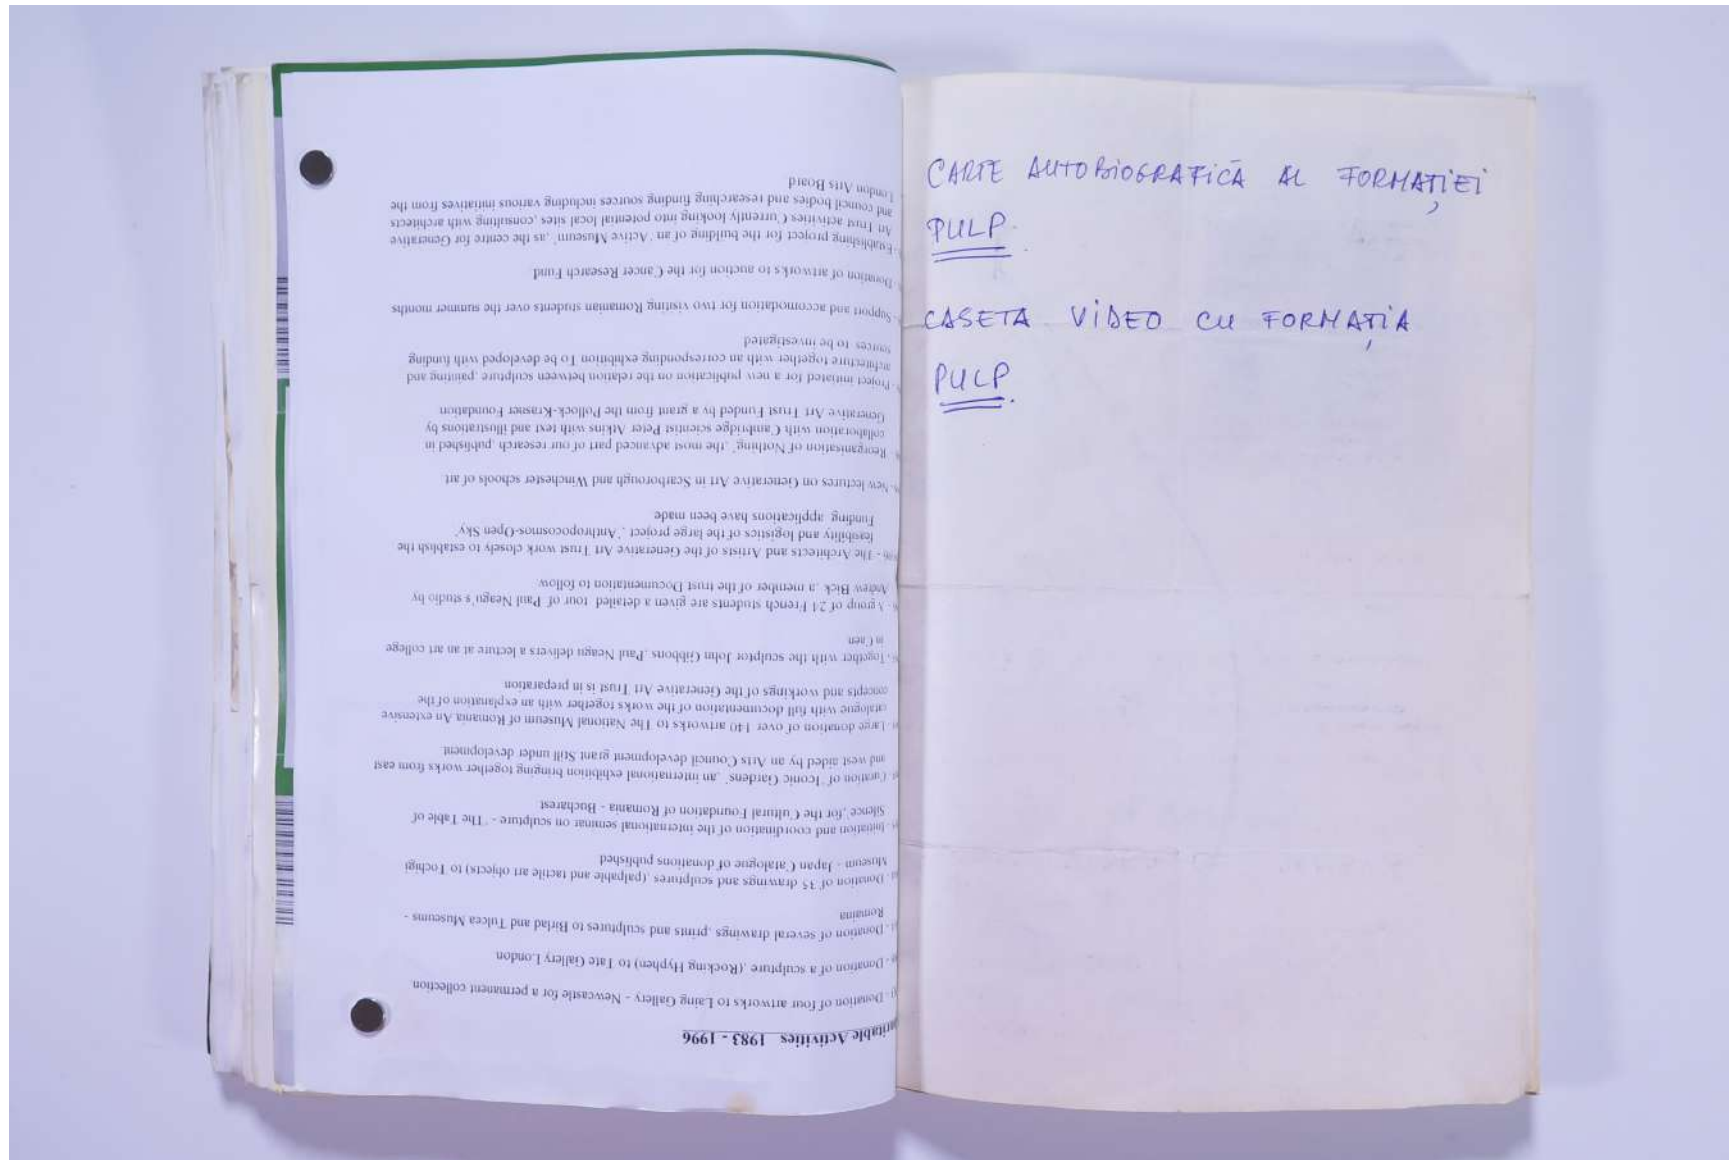 Activities 1983 - 1996
- Donation of four artworks to Laing Gallery - Newcastle for a permanent collection
- Donation of a sculpture ,(Rocking Hyphen) to Tate Gallery London
- Donation of several drawings ,prints and sculptures to Birlad and Tulcea Museums -
Romaina
- Donation of 35 drawings and sculptures ,(palpable and tactile art objects) to Tochigi
Museum - Japan Catalogue of donations published
- Initiation and coordination of the international seminar on sculpture - 'The Table of
Silence ,for the Cultural Foundation of Romania - Bucharest
- Curation of 'Iconic Gardens' ,an international exhibition bringing together works from east
and west aided by an Arts Council development grant Still under development
- Large donation of over 140 artworks to The National Museum of Romania An extensive
catalogue with full documentation of the works together with an explanation of the
concepts and workings of the Generative Art Trust is in preparation
Together with the sculptor John Gibbons ,Paul Neagu delivers a lecture at an art college
in Caen
- A group of 21 French students are given a detailed tour of Paul Neagu's studio by
Andrew Bick ,a member of the trust Documentation to follow
- The Architects and Artists of the Generative Art Trust work closely to establish the
feasibility and logistics of the large project ,'Anthropocosmos-Open Sky'
Funding applications have been made
- New lectures on Generative Art in Scarborough and Winchester schools of art
Reorganisation of Nothing' ,the most advanced part of our research ,published in
collaboration with Cambridge scientist Peter Atkins with text and illustrations by
Generative Art Trust Funded by a grant from the Pollock-Krasner Foundation
- Project initiated for a new publication on the relation between sculpture ,painting and
architecture together with an corresponding exhibition To be developed with funding
sources to be investigated
- Support and accomodation for two visiting Romanian students over the summer months
- Donation of artworks to auction for the Cancer Research Fund
- Establishing project for the building of an 'Active Museum' ,as the centre for Generative
An Trust activities Currently looking into potential local sites ,consulting with architects
and council bodies and researching funding sources including various initiatives from the
London Arts Board
CARTE AUTOBIOGRAFICĂ AL FORMAȚIEI
PULP.
CASETA VIDEO CU FORMAȚIA
PULP.